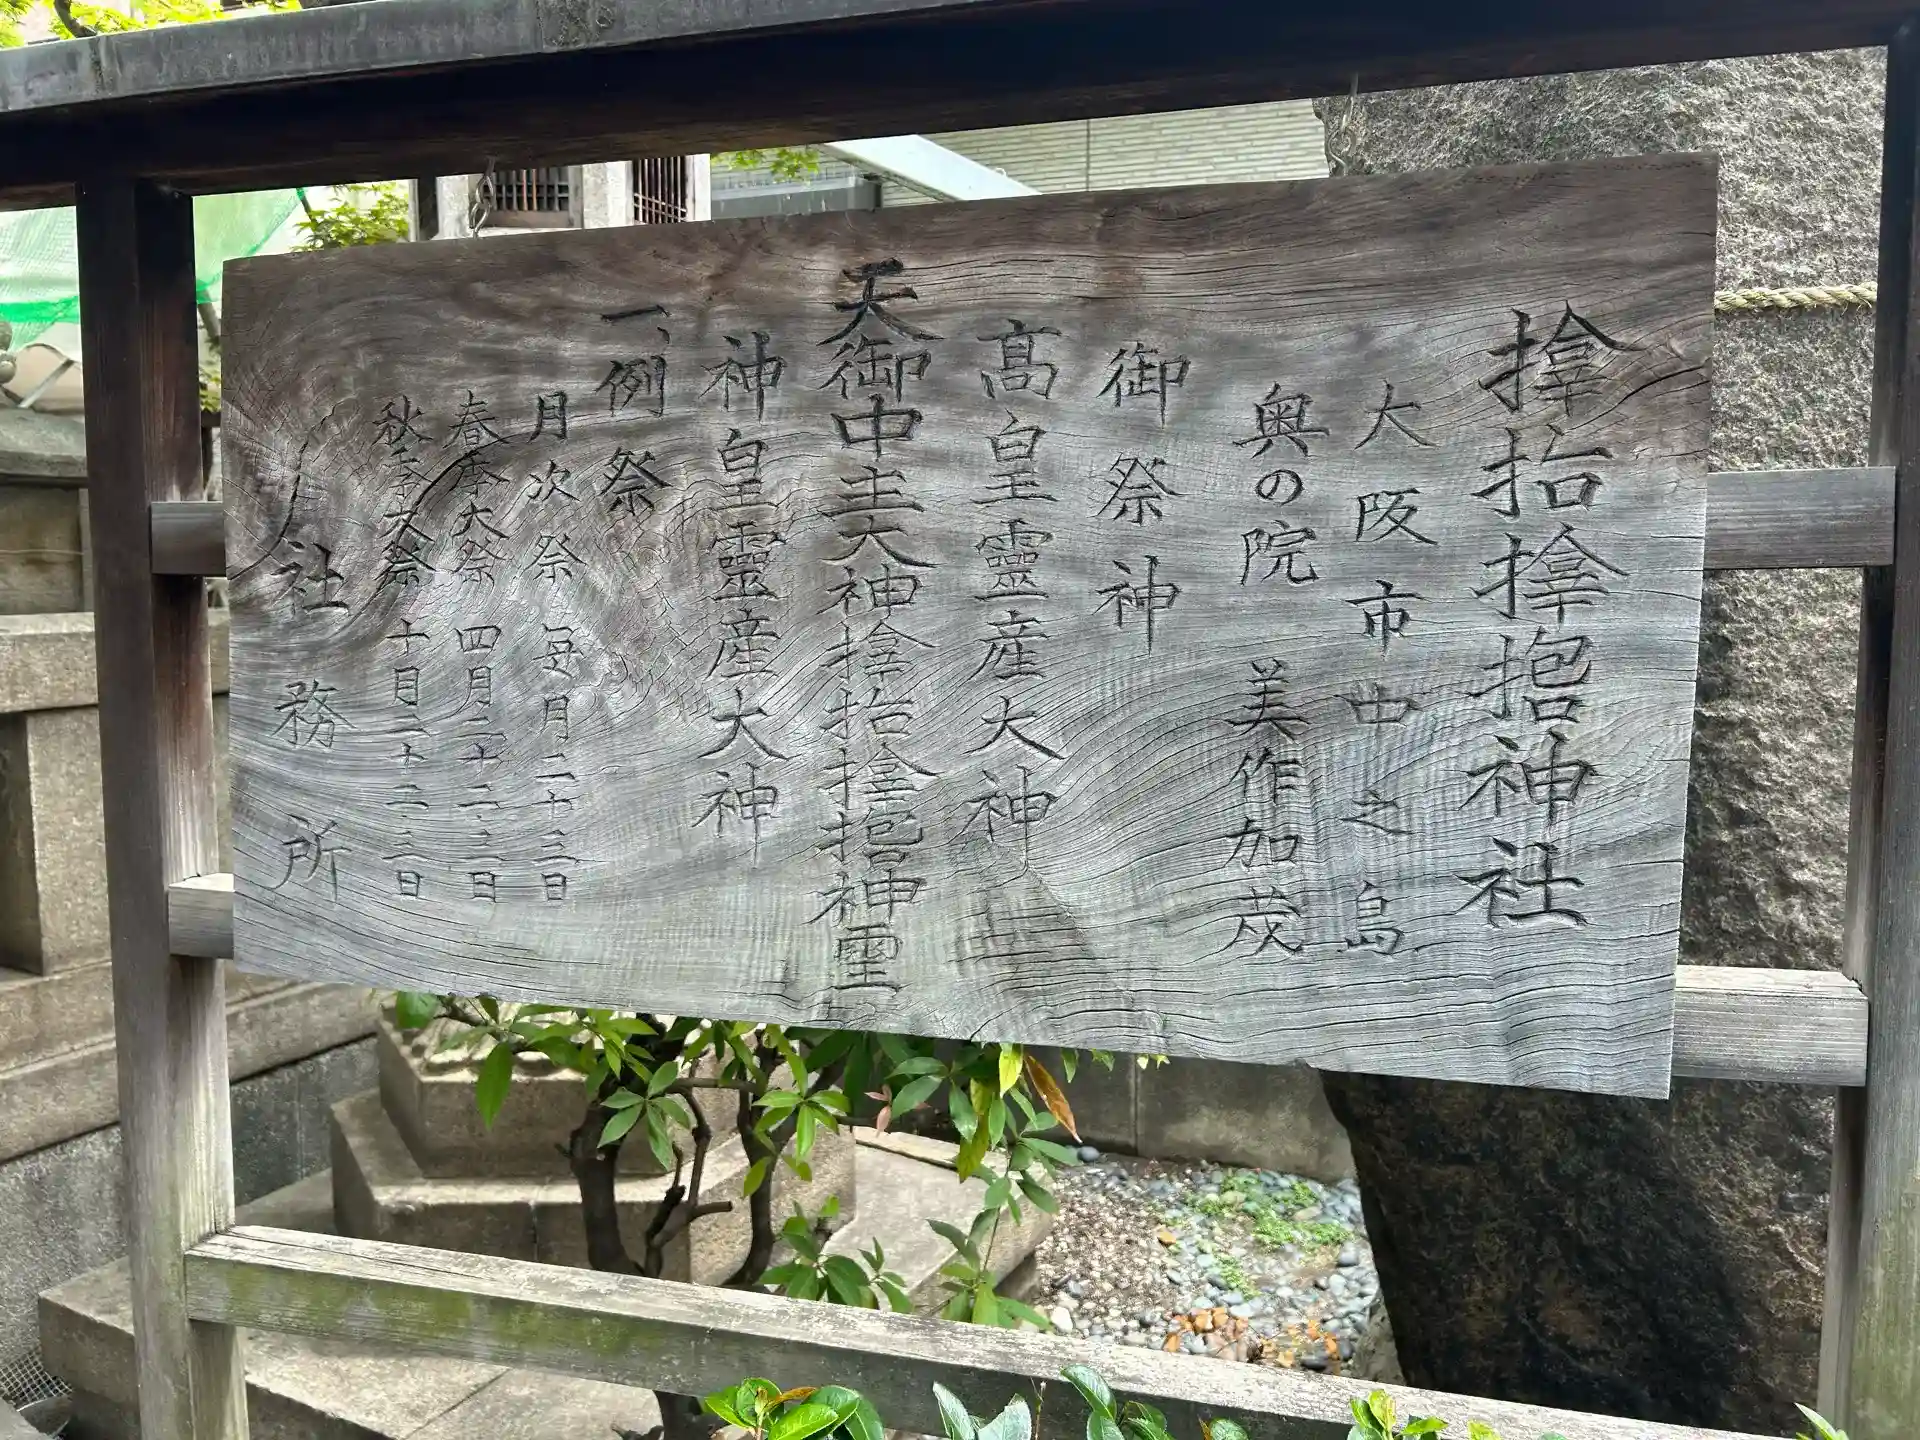 𪮷𫝼𪮷𫝽神社
大阪市中之島
奥の院 美作加茂
御祭神
髙皇靈産大神
天御中主大神𪮷𫝼𪮷𫝽神霊
神皇靈産大神
一、例祭
月次祭 毎月二十三日
春季大祭 四月二十二・三日
秋季大祭 十月二十二・三日
社務所